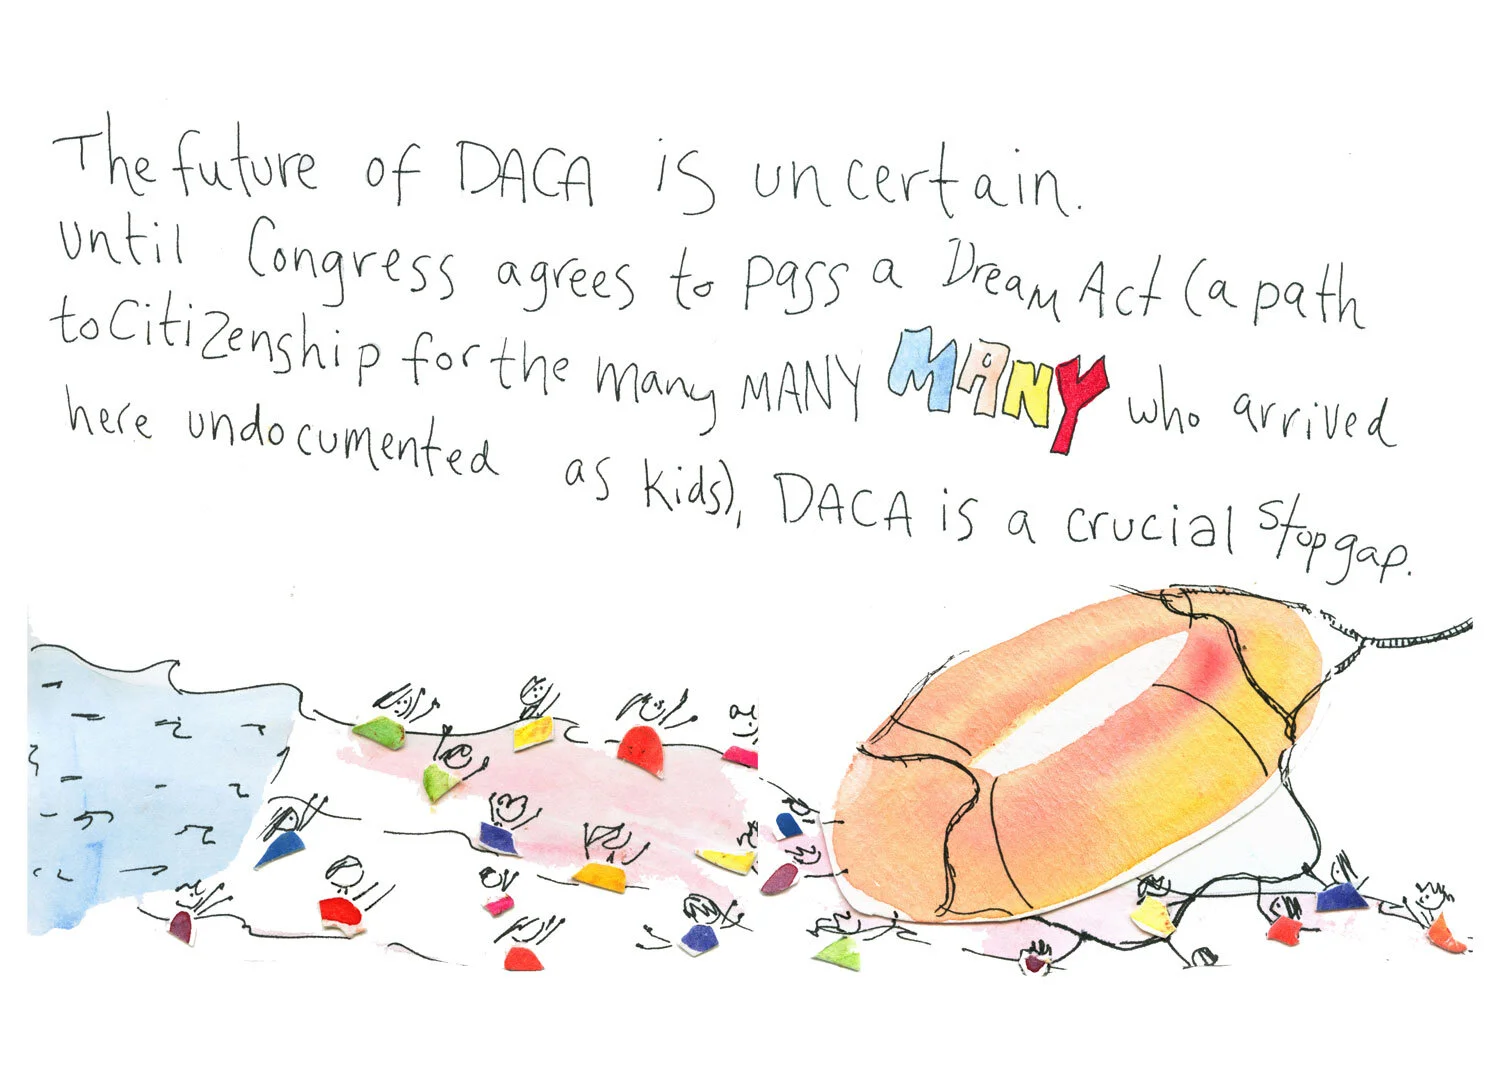 The future of DACA is uncertain.
until Congress agrees to pass a Dream Act (a path
to Citizenship for the many MANY MANY who arrived
here undocumented as kids), DACA is a crucial stopgap.